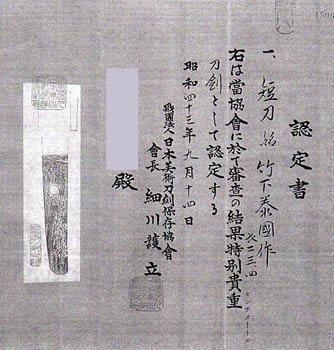 認定書
一、短刀 銘 竹下泰國作
長二三、四
右は當協會に於て審査の結果特別貴重
刀劍として認定する
昭和四十三年九月十四日
財團法人日本美術刀劍保存協會
會長 細川護立
殿